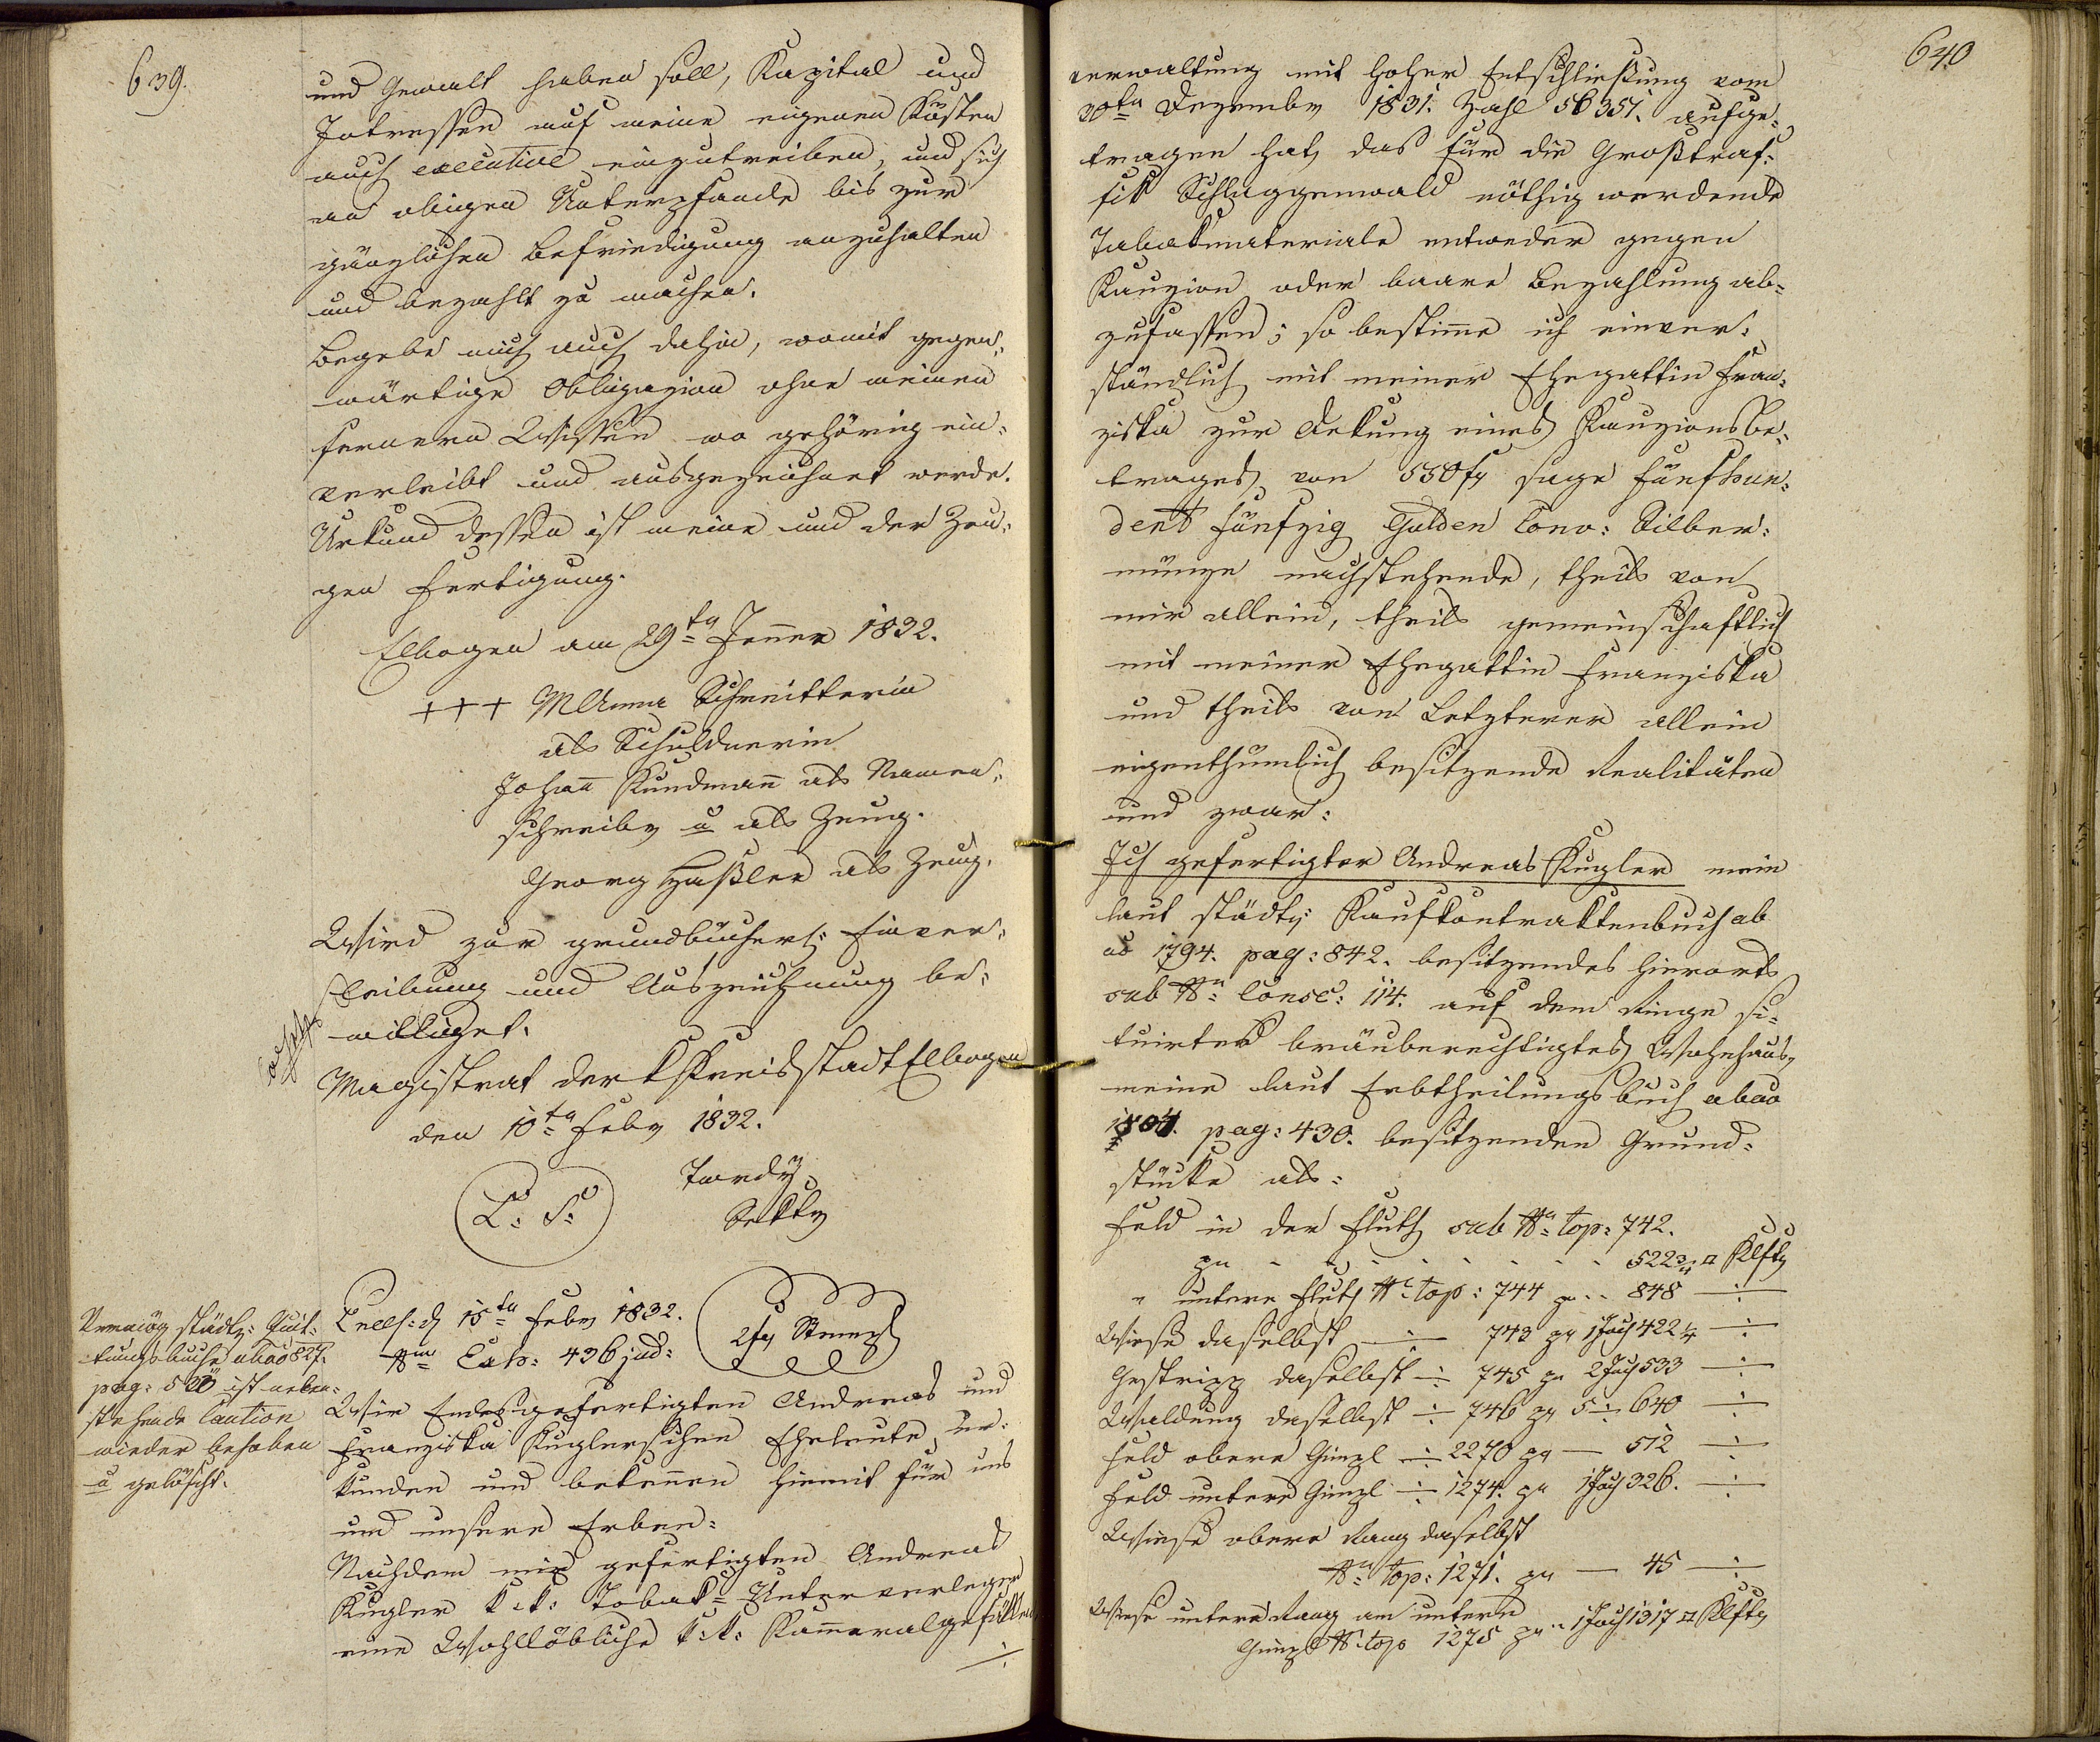 639.
und Gewalt haben soll, Kapital und
Intressen auf meine eigenen Kösten
auch executive einzutreiben, und sich
an obigen Unterpfande bis zur
gänzlichen Befriedigung anzuhalten
und bezahlt zu machen.
Begebe mich auch dahin, womit gegen=
wärtige Obligazion ohne meinen
fernern Wissen wo gehörig ein=
verleibt und ausgezeichnet werde.
Urkund dessen ist meine und der Zeu=
gen Fertigung.
Elbogen am 29ten Jenner 1832.
+++ M Anna Schreitterin
als Schuldnerin
Johann Kundmann als Namen=
schreiber u als Zeug.
Georg Haßler als Zeug.
Wird zur grundbücherl: Einver=
leibung und Auszeichnung be=
williget.
Magistrat der k Kreisstadt Elbogen
den 10ten Feber 1832.
L: S:
Tardy
Sekkr
15ten Feber 1832.
Nro Exh: 436 jud:
2 fr Stempl
Vermög städt: Quit=
tungsbuche abao 827.
pag: 520 ist neben=
stehende Caution
wieder behoben
u gelöscht.
Wir Endesgefertigten Andreas und
Franziska Kuglerischen Eheleute, ur=
kunden und bekennen hiemit für uns
und unsere Erben:
Nachdem mir gefertigten Andreas
Kugler k: k: Tobak= Unterverleger
eine Wohllöbliche k: k: Kammeralgefällen
640
verwaltung mit hoher Entschließung vom
30ten Dezember 1831. Zahl 56351. aufge=
tragen hat, das für die Großtraf=
fik Schlaggenwald nöthig werdende
Tabakmateriale entweder gegen
Kauzion oder baare Bezahlung ab=
zufassen; so bestimme ich einver=
ständlich mit meiner Ehegattin Fran=
ziska zur Dekung eines Kauzionsbe=
trages von 550 fr sage fünfhun=
dert fünfzig Gulden Conv: Silber=
münze nachstehende, theils von
mir allein, theils gemeinschaftlich
mit meiner Ehegattin Franziska
und theils von Letzterer allein
eigenthumlich besitzende Realitäten
und zwar:
Ich gefertigter Andreas Kugler mein
laut städt: Kaufkontraktenbuch ab
ao 1794. pag: 842. besitzendes hierorts
sub No Consc: 114. auf dem Ringe si=
tuirtes bräuberechtigtes Wohnhaus,
meine laut Erbtheilungsbuch abao
1804. pag: 430. besitzenden Grund=
stücke als:
Feld in der Fluth sub No top: 742.
pr - - - - - - - 522 3/4 □ Klftr
" untere Fluth No top: 744 pr .. 848 ÷
Wiese daselbst ÷ 743 pr 1 Joch 422 1/4 ÷
Gestripp daselbst ÷ 745 pr 2 Joch 533 ÷
Waldung daselbst ÷ 746 pr 5 ÷ 640 ÷
Feld obere Ginzl ÷ 2270 pr — 512 ÷
Feld untere Ginzl ÷ 1274. pr 1 Joch 326. ÷
Wiese obere Rang daselbst
No top: 1271. pr — 45 ÷
Wiese untere Rang am untern
Ginzl No top 1275 pr .. 1 Joch 1317 □ Klftr